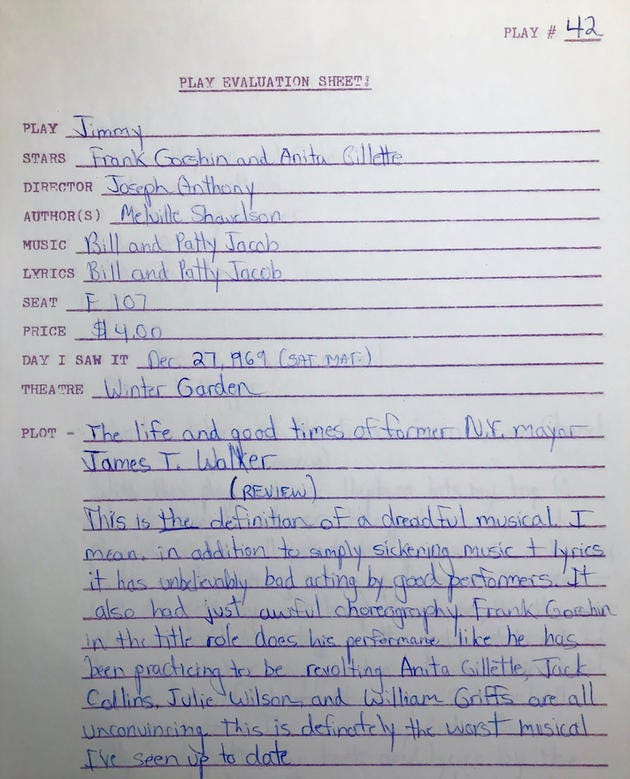 PLAY # 42
PLAY EVALUATION SHEET!
PLAY Jimmy
STARS Frank Gorshin and Anita Gillette
DIRECTOR Joseph Anthony
AUTHOR(S) Melville Shavelson
MUSIC Bill and Patty Jacob
LYRICS Bill and Patty Jacob
SEAT F 107
PRICE $4.00
DAY I SAW IT Dec. 27, 1969 (SAT. MAT.)
THEATRE Winter Garden
PLOT - The life and good times of former N.Y. mayor
James T. Walker
(REVIEW)
This is the definition of a dreadful musical. I
mean, in addition to simply sickening music + lyrics
it has unbelievably bad acting by good performers. It
also had just awful choreography. Frank Gorshin
in the title role does his performane like he has
been practicing to be revolting. Anita Gillette, Jack
Collins, Julie Wilson, and William Griffs are all
unconvincing. This is definetely the worst musical
I've seen up to date